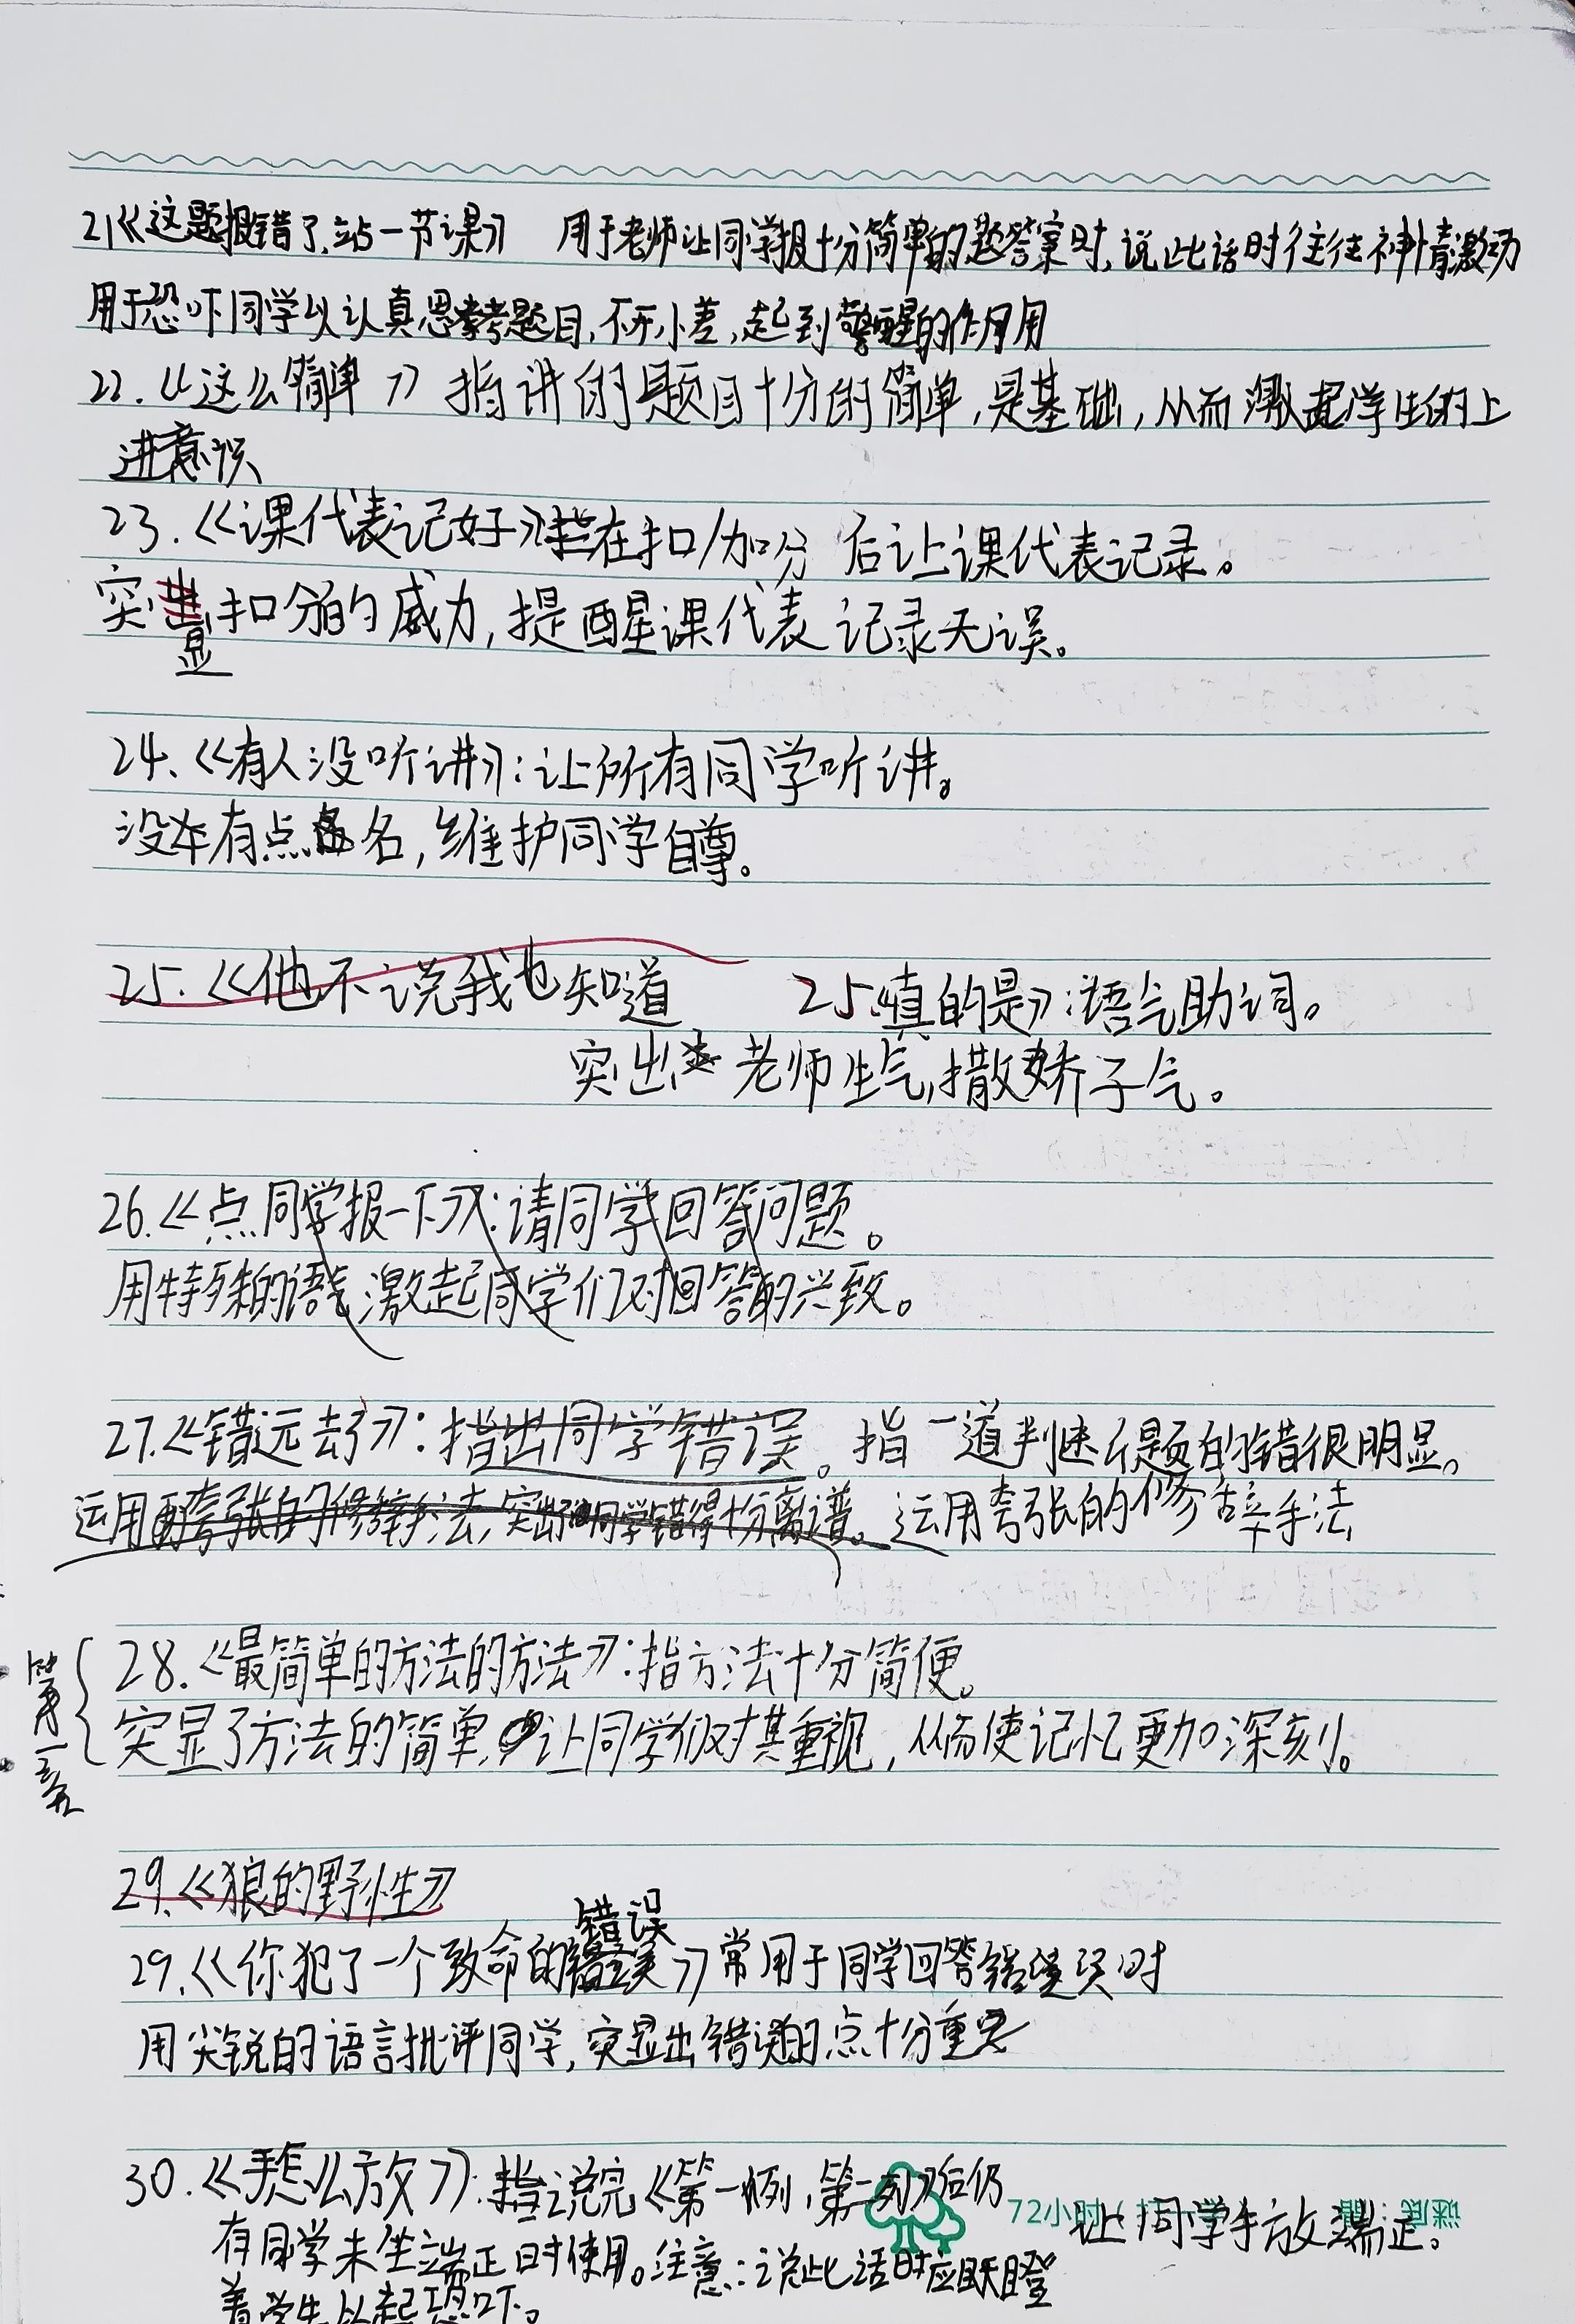 21《这题报错了,站一节课》 用于老师让同学报十分简单的题答案时,说此话时往往神情激动
用于恐吓同学以认真思考题目,不开小差,起到警醒的作用
22.《这么简单》 指讲的题目十分的简单,是基础,从而激起学生的上
进意识
23.《课代表记好》指在扣/加分 后让课代表记录。
突显扣分的威力,提醒课代表 记录无误。
24、《有人没听讲》:让所有同学听讲。
没有点名,维护同学自尊。
25.《他不说我也知道 25.《真的是》:语气助词。
突出 老师生气,撒娇子气。
26.《点同学报一下》:请同学回答问题。
用特殊的语气激起同学们对回答的兴致。
27.《错远去了》:指出同学错误。指一道判述题的错很明显。
运用夸张的修辞手法,突出同学错得十分离谱。运用夸张的修辞手法
第一章
28.《最简单的方法的方法》:指方法十分简便。
突显了方法的简单,让同学们对其重视,从而使记忆更加深刻。
29.《狼的野性》
错误
29.《你犯了一个致命的 》常用于同学回答错误时
用尖锐的语言批评同学,突显出错误的点十分重要
30.《手怎么放》:指说完《第一列,第二列》后仍 让同学手放端正。
72小时
有同学未坐端正时使用。注意:说此话时应瞪
着学生以起恐吓。